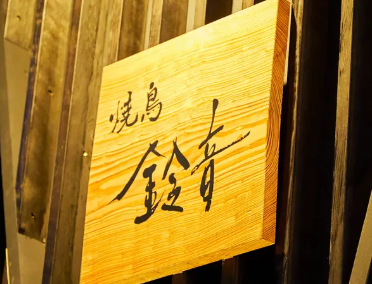 焼鳥
鈴音